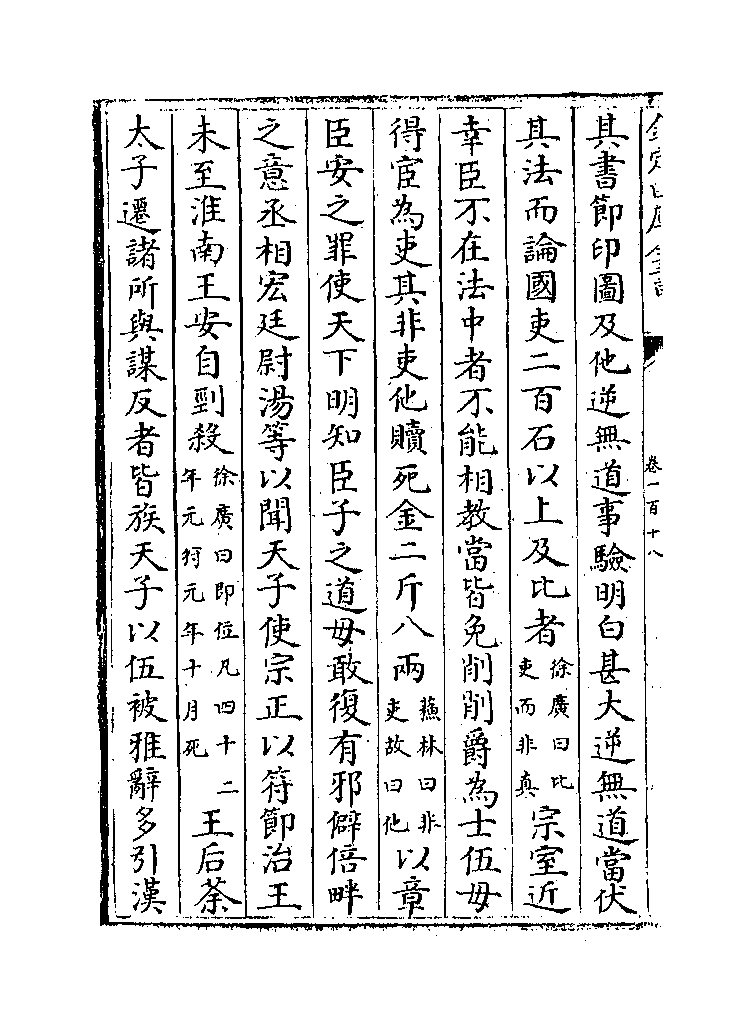 欽定四庫全書
卷一百十八
其書節印圖及他逆無道事驗明白甚大逆無道當伏
其法而論國吏二百石以上及比者徐廣曰比吏而非真宗室近
幸臣不在法中者不能相教當皆免削削爵為士伍毋
得宦為吏其非吏他贖死金二斤八兩蘇林曰非吏故曰他以章
臣安之罪使天下明知臣子之道毋敢復有邪僻倍畔
之意丞相宏廷尉湯等以聞天子使宗正以符節治王
未至淮南王安自剄殺徐廣曰即位凡四十二年元狩元年十月死王后荼
太子遷諸所與謀反者皆族天子以伍被雅辭多引漢